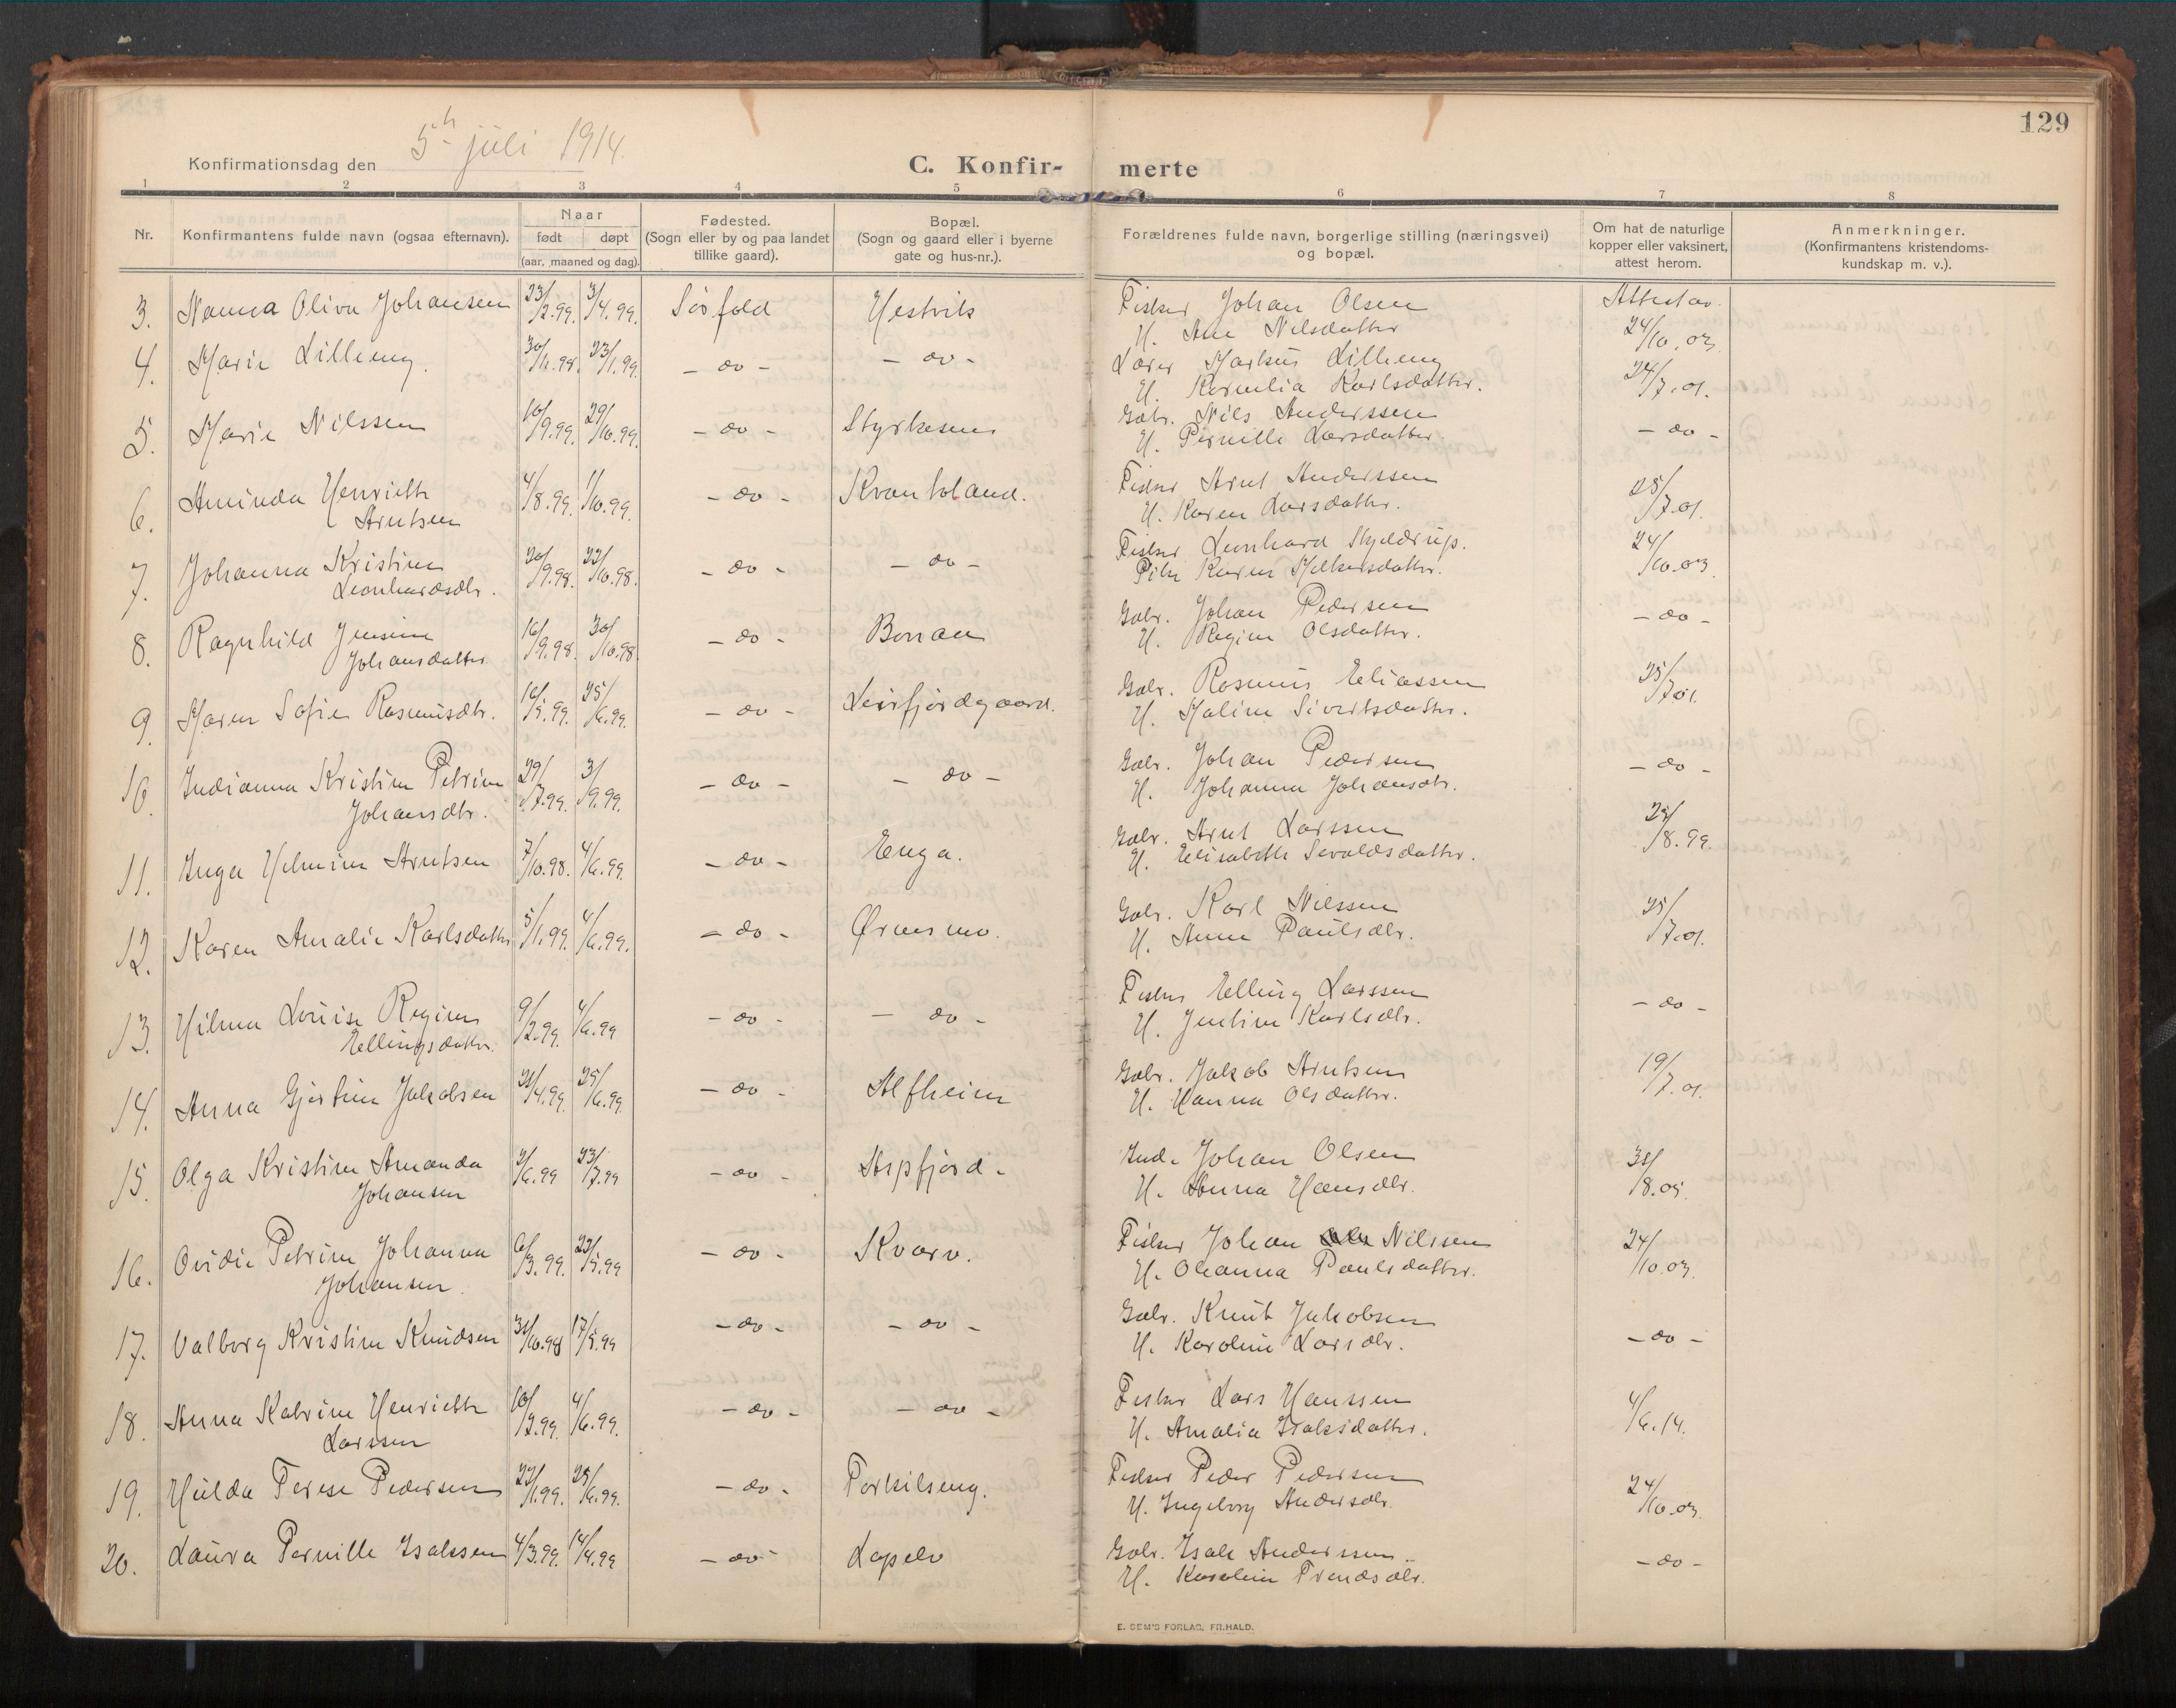 129
5te juli 1914.
Konfirmationsdag den
C. Konfir- merte
1 2 3 4 5 6 7 8
Nr.
Konfirmantens fulde navn (ogsaa efternavn).
Naar
født døpt
(aar, maaned og dag).
Fødested.
(Sogn eller by og paa landet
tillike gaard).
Bopæl.
(Sogn og gaard eller i byerne
gate og hus-nr.).
Forældrenes fulde navn, borgerlige stilling (næringsvei)
og bopæl.
Om hat de naturlige
kopper eller vaksinert,
attest herom.
Anmerkninger.
(Konfirmantens kristendoms-
kundskap m. v.).
3. Nanna Oliva Johansen 23/2.99. 3/4.99. Sørfold Hestvik Fisker Johan Olsen Attest av
H. Ane Nilsdatter 24/10.03.
4. Marie Lilleeng. 30/11.98. 23/1.99. - do - - do - Lærer Markus Lilleeng
H. Kornelia Karlsdatter. 24/7.01.
5. Marie Nilssen 10/9.99. 29/10.99. - do - Styrkesnes Gbr. Nils Anderssen
H. Pernille Larsdatter. - do -
6. Aminda Henriette 4/8.99. 1/10.99. - do - Kvantoland. Fisker Arnt Anderssen
Arntsen H. Karen Larsdatter. 25/7.01.
7. Johanna Kristine 20/9.98. 22/10.98. - do - - do - Fisker Leonhard Skjeldrup. 24/10.03.
Leonhardsdtr. Pike Karen Mikkelsdatter.
8. Ragnhild Jensine 16/9.98. 30/10.98. - do - Bonaa Gbr. Johan Pedersen - do -
Johansdatter H. Regine Olsdatter.
9. Maren Sofie Rasmusdtr. 16/5.99. 25/6.99. - do - Leirfjordgaard. Gbr. Rasmus Eliassen 25/7.01.
H. Maline Sivertsdatter.
10. Indianna Kristine Petrine 29/7.99. 3/9.99. - do - - do - Gbr. Johan Pedersen - do -
Johansdtr. H. Johanna Johansdtr.
11. Inga Helmine Arntsen 7/10.98. 4/6.99. - do - Enga. Gbr. Arnt Larssen 25/8.99.
H. Elisabeth Sevaldsdatter.
12. Karen Amalie Karlsdatter 5/1.99. 4/6.99. - do - Ørnesmo. Gbr. Karl Nilssen 25/7.01.
H. Anne Paulsdtr.
13. Hilma Louise Regine 9/2.99. 4/6.99 - do - - do - Fisker Elling Larssen - do -
Ellingsdatter. H. Jentine Karlsdtr.
14. Anna Gjertine Jakobsen 21/4.99. 25/6.99. - do - Alfheim Gbr. Jakob Arntsen 19/7.01.
H. Hanna Olsdatter.
15. Olga Kristine Amanda 2/6.99 23/7.99 - do - Aspfjord. Ind. Johan Olsen 31/8.05.
Johansen H. Anna Hansdtr.
16. Ovidie Petrine Johanna 6/3.99. 23/5.99 - do - Kvarv. Fisker Johan Nilssen 24/10.03.
Johansen. H. Oleanna Paulsdatter.
17. Valborg Kristine Knudsen 31/10.98 17/5.99 - do - - do - Gbr. Knut Jakobsen
H. Karoline Larsdtr. - do -
18. Anna Katrine Henriette 10/2.99. 4/6.99. - do - - do - Fisker Lars Hanssen 4/6.14.
Larssen H. Amalia Isaksdatter.
19. Hulda Terese Pedersen 22/1.99. 25/6.99. - do - Torkilseng. Fisker Peder Pedersen 24/10.03.
H. Ingeborg Andersdtr.
20. Laura Pernille Isakssen 4/3.99. 14/4.99 - do - Lapelv Gbr. Isak Anderssen - do -
H. Karoline Trondsdtr.
E. SEM'S FORLAG, FR.HALD.